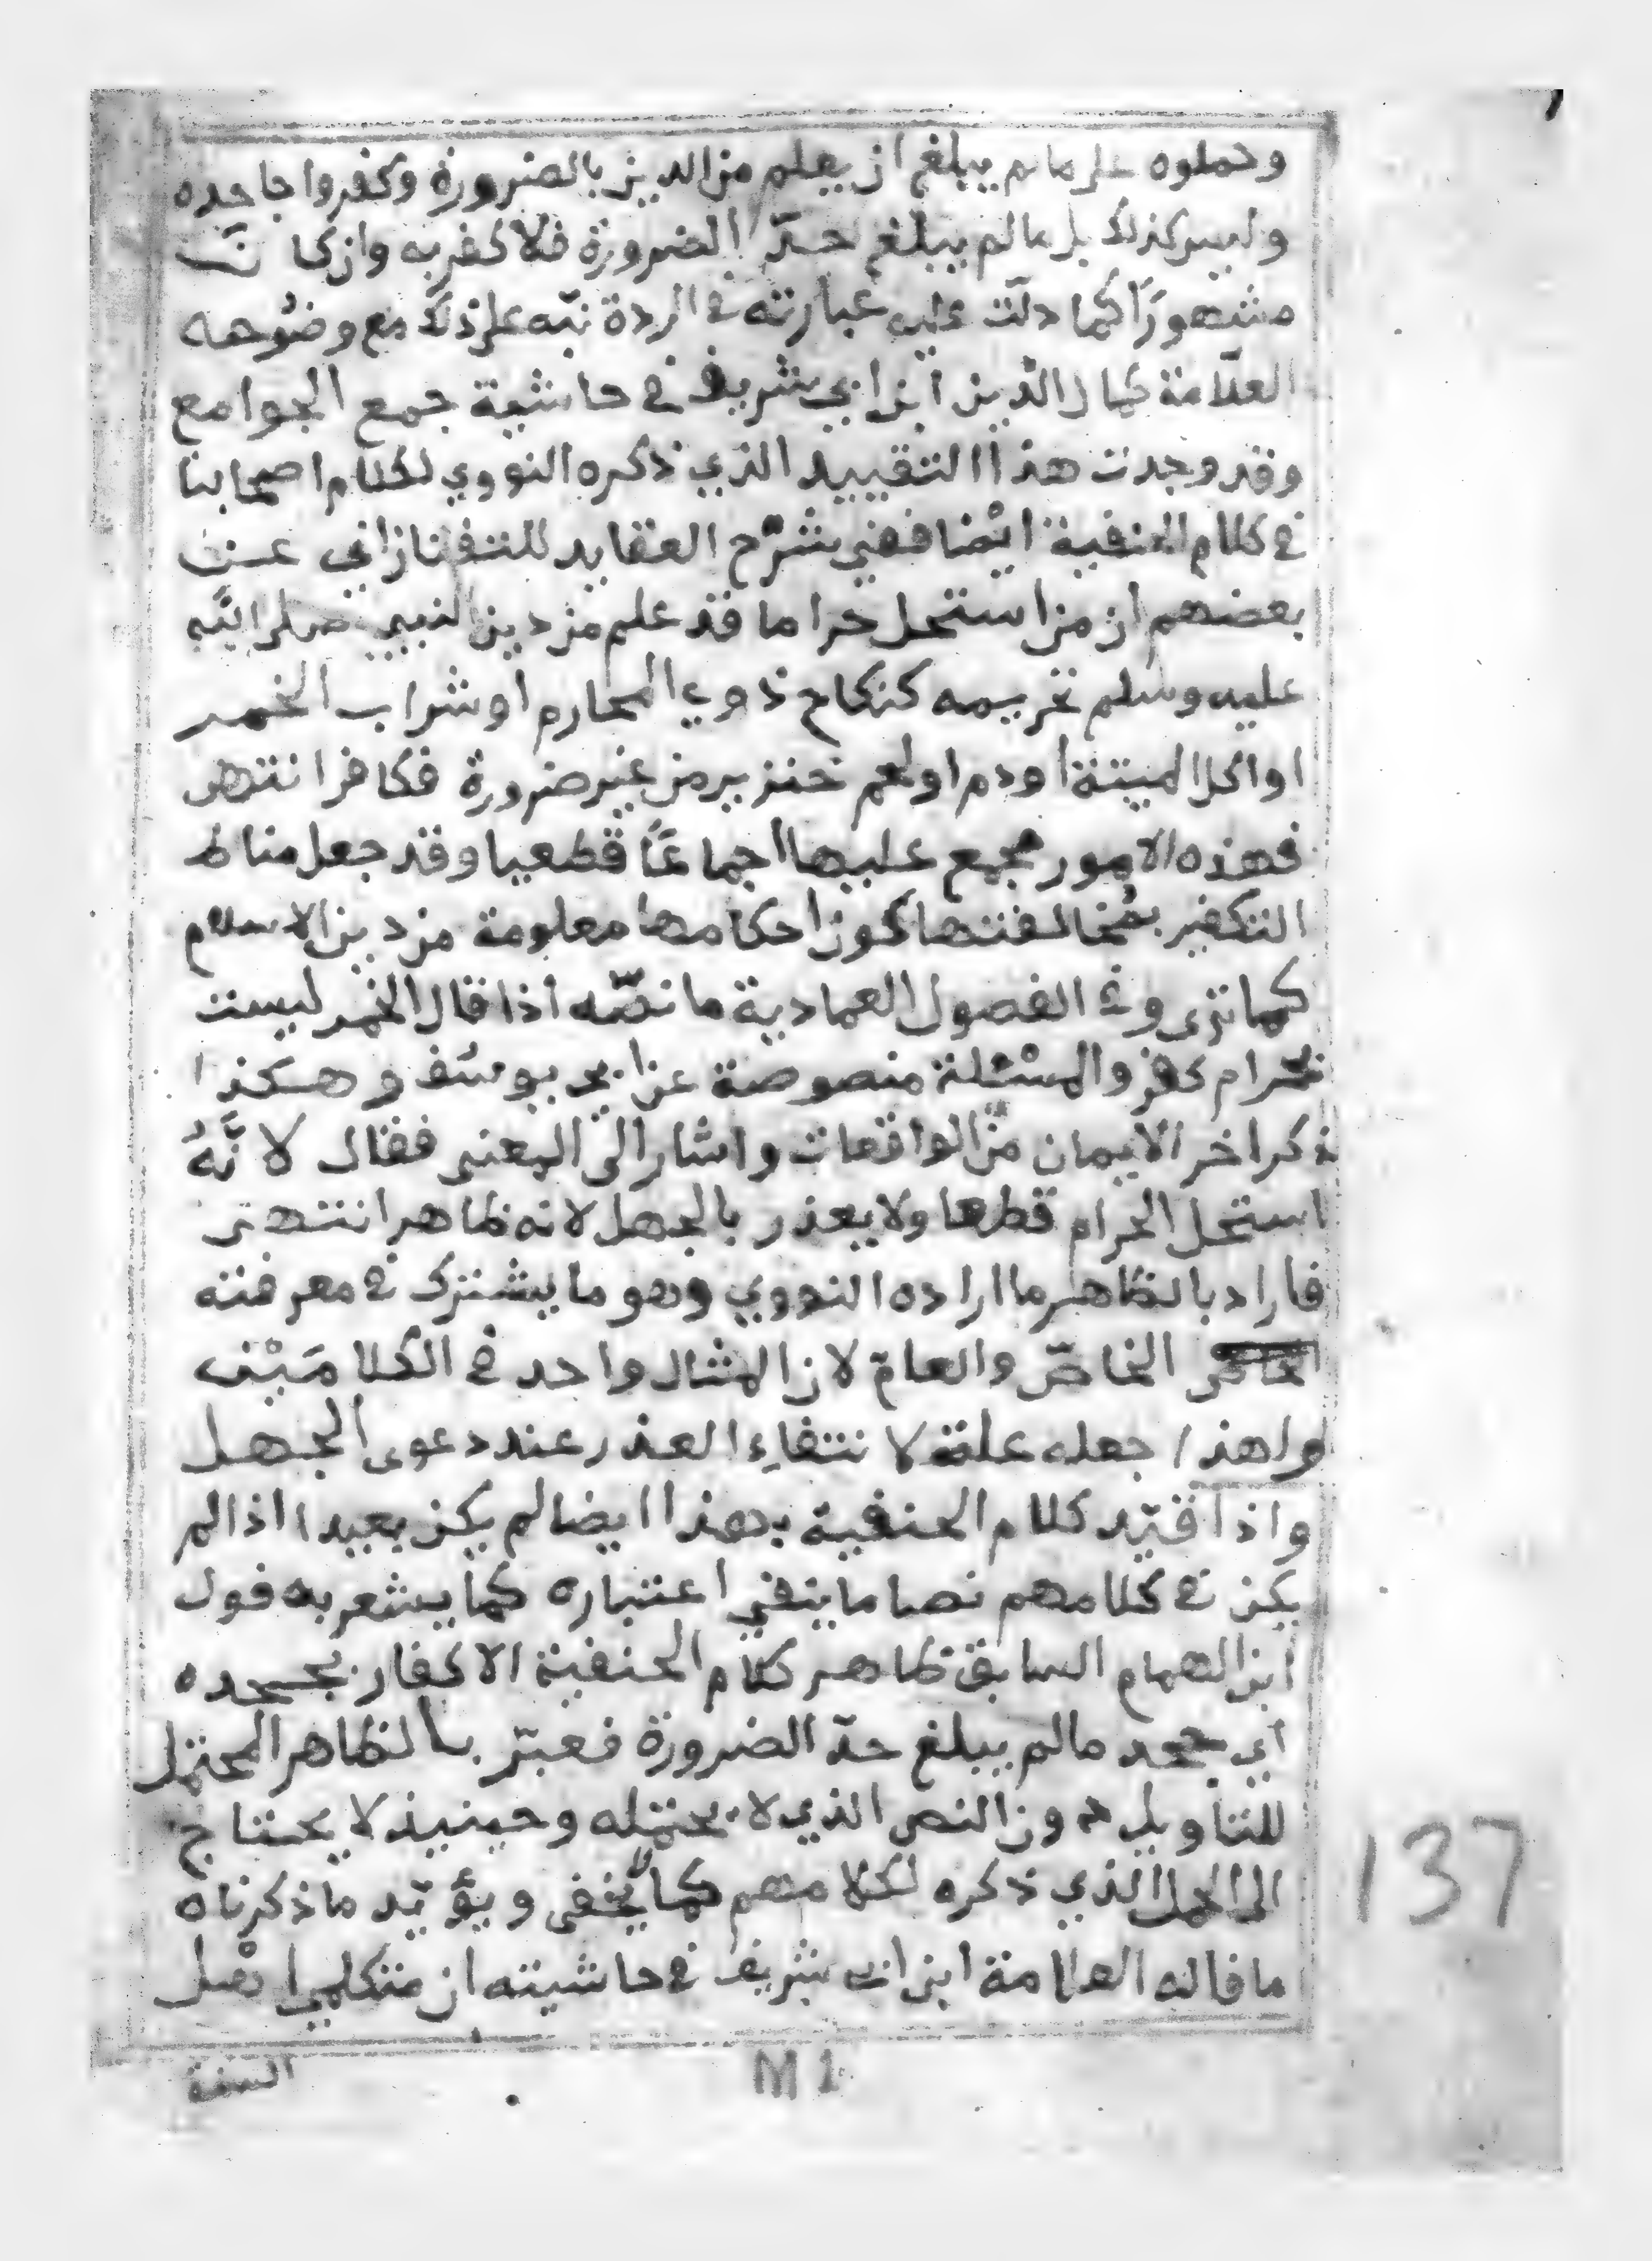 وحملوه على ما لم يبلغ ان يعلم من الدين بالضرورة وكفروا جاحده
وليس كذلك بل ما لم يبلغ حدّ الضرورة فلا كفر به وان كان
مشهورًا كما دلّت عليه عبارته في الردة نبّه على ذلك مع وضُوحه
العلّامة كمال الدّين ابن ابي شريف في حاشية جمع الجوامع
وقد وجدت هذا التقييد الذي ذكره النووي لكلام اصحابنا
في كلام الحنفية ايْضا ففي شرْح العقايد للتفتازاني عن
بعضهم ان من استحل حراما قد علم من دين النبي صلى الله
عليه وسلم تحريمه كنكاح ذوي المحارم او شراب الخمر
او اكل الميتة او دم او لحم خنزير من غير ضرورة فكافر انتهى
فهذه الامور مجمع عليها اجماعًا قطعيا وقد جعل مناط
التكفير بمُخالفتها كون احكامها معلومة من دين الاسلام
كما ترى وفي الفصول العمادية ما نصّه اذا قال الخمر ليست
بحرام كفر والمسْئلة منصوصة عن ابي يوسُف وهكذا
ذكر اخر الايمان من الواقعات واشار الى المعنى فقال لانَّهُ
استحل الحرام قطعا ولا يعذر بالجهل لانه ظاهر انتهى
فاراد بالظاهر ما اراده النووي وهو ما يشترك في معرفته
الخاصّ والعامّ لان المثال واحد في الكلامَيْن
ولهذا جعله علة لانتفاءِ العذر عند دعوى الجهل
واذا قيّد كلام الحنفية بهذا ايضا لم يكن بعيدا اذا لم
يكن في كلامهم نصا ما ينفي اعتباره كما يشعر به قول
ابن الهمام السابق ظاهر كلام الحنفية الاكفار بجحده
اي جحد ما لم يبلغ حدّ الضرورة فعبّر بالظاهر المحتمل
للتاويل دون النص الذي لا يحتمله وحينيذ لا يحتاج
الى الحمل الذي ذكره لكلامهم كما لا يخفى ويؤيّد ما ذكرناه
ما قاله العلامة ابن ابي شريف في حاشيته ان متكلمي اهْل
السنة
M 1
137